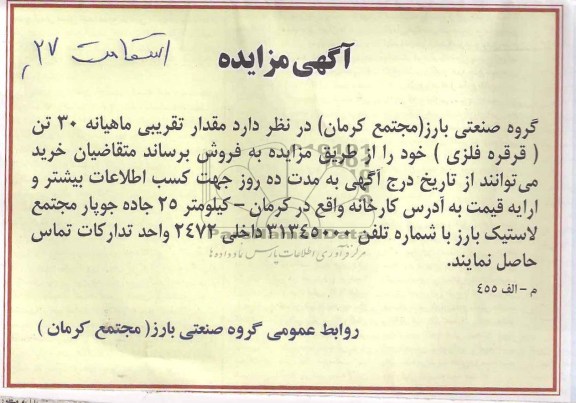 استقامت ۲۷,
آگهی مزایده
گروه صنعتی بارز(مجتمع کرمان) در نظر دارد مقدار تقریبی ماهیانه ۳۰ تن
( قرقره فلزی ) خود را از طریق مزایده به فروش برساند متقاضیان خرید
می‌توانند از تاریخ درج آگهی به مدت ده روز جهت کسب اطلاعات بیشتر و
ارایه قیمت به آدرس کارخانه واقع در کرمان – کیلومتر ۲۵ جاده جوپار مجتمع
لاستیک بارز با شماره تلفن ۳۱۳۴۵۰۰۰ داخلی ۲۴۷۳ واحد تدارکات تماس
حاصل نمایند.
م – الف ۴۵۵
روابط عمومی گروه صنعتی بارز( مجتمع کرمان )